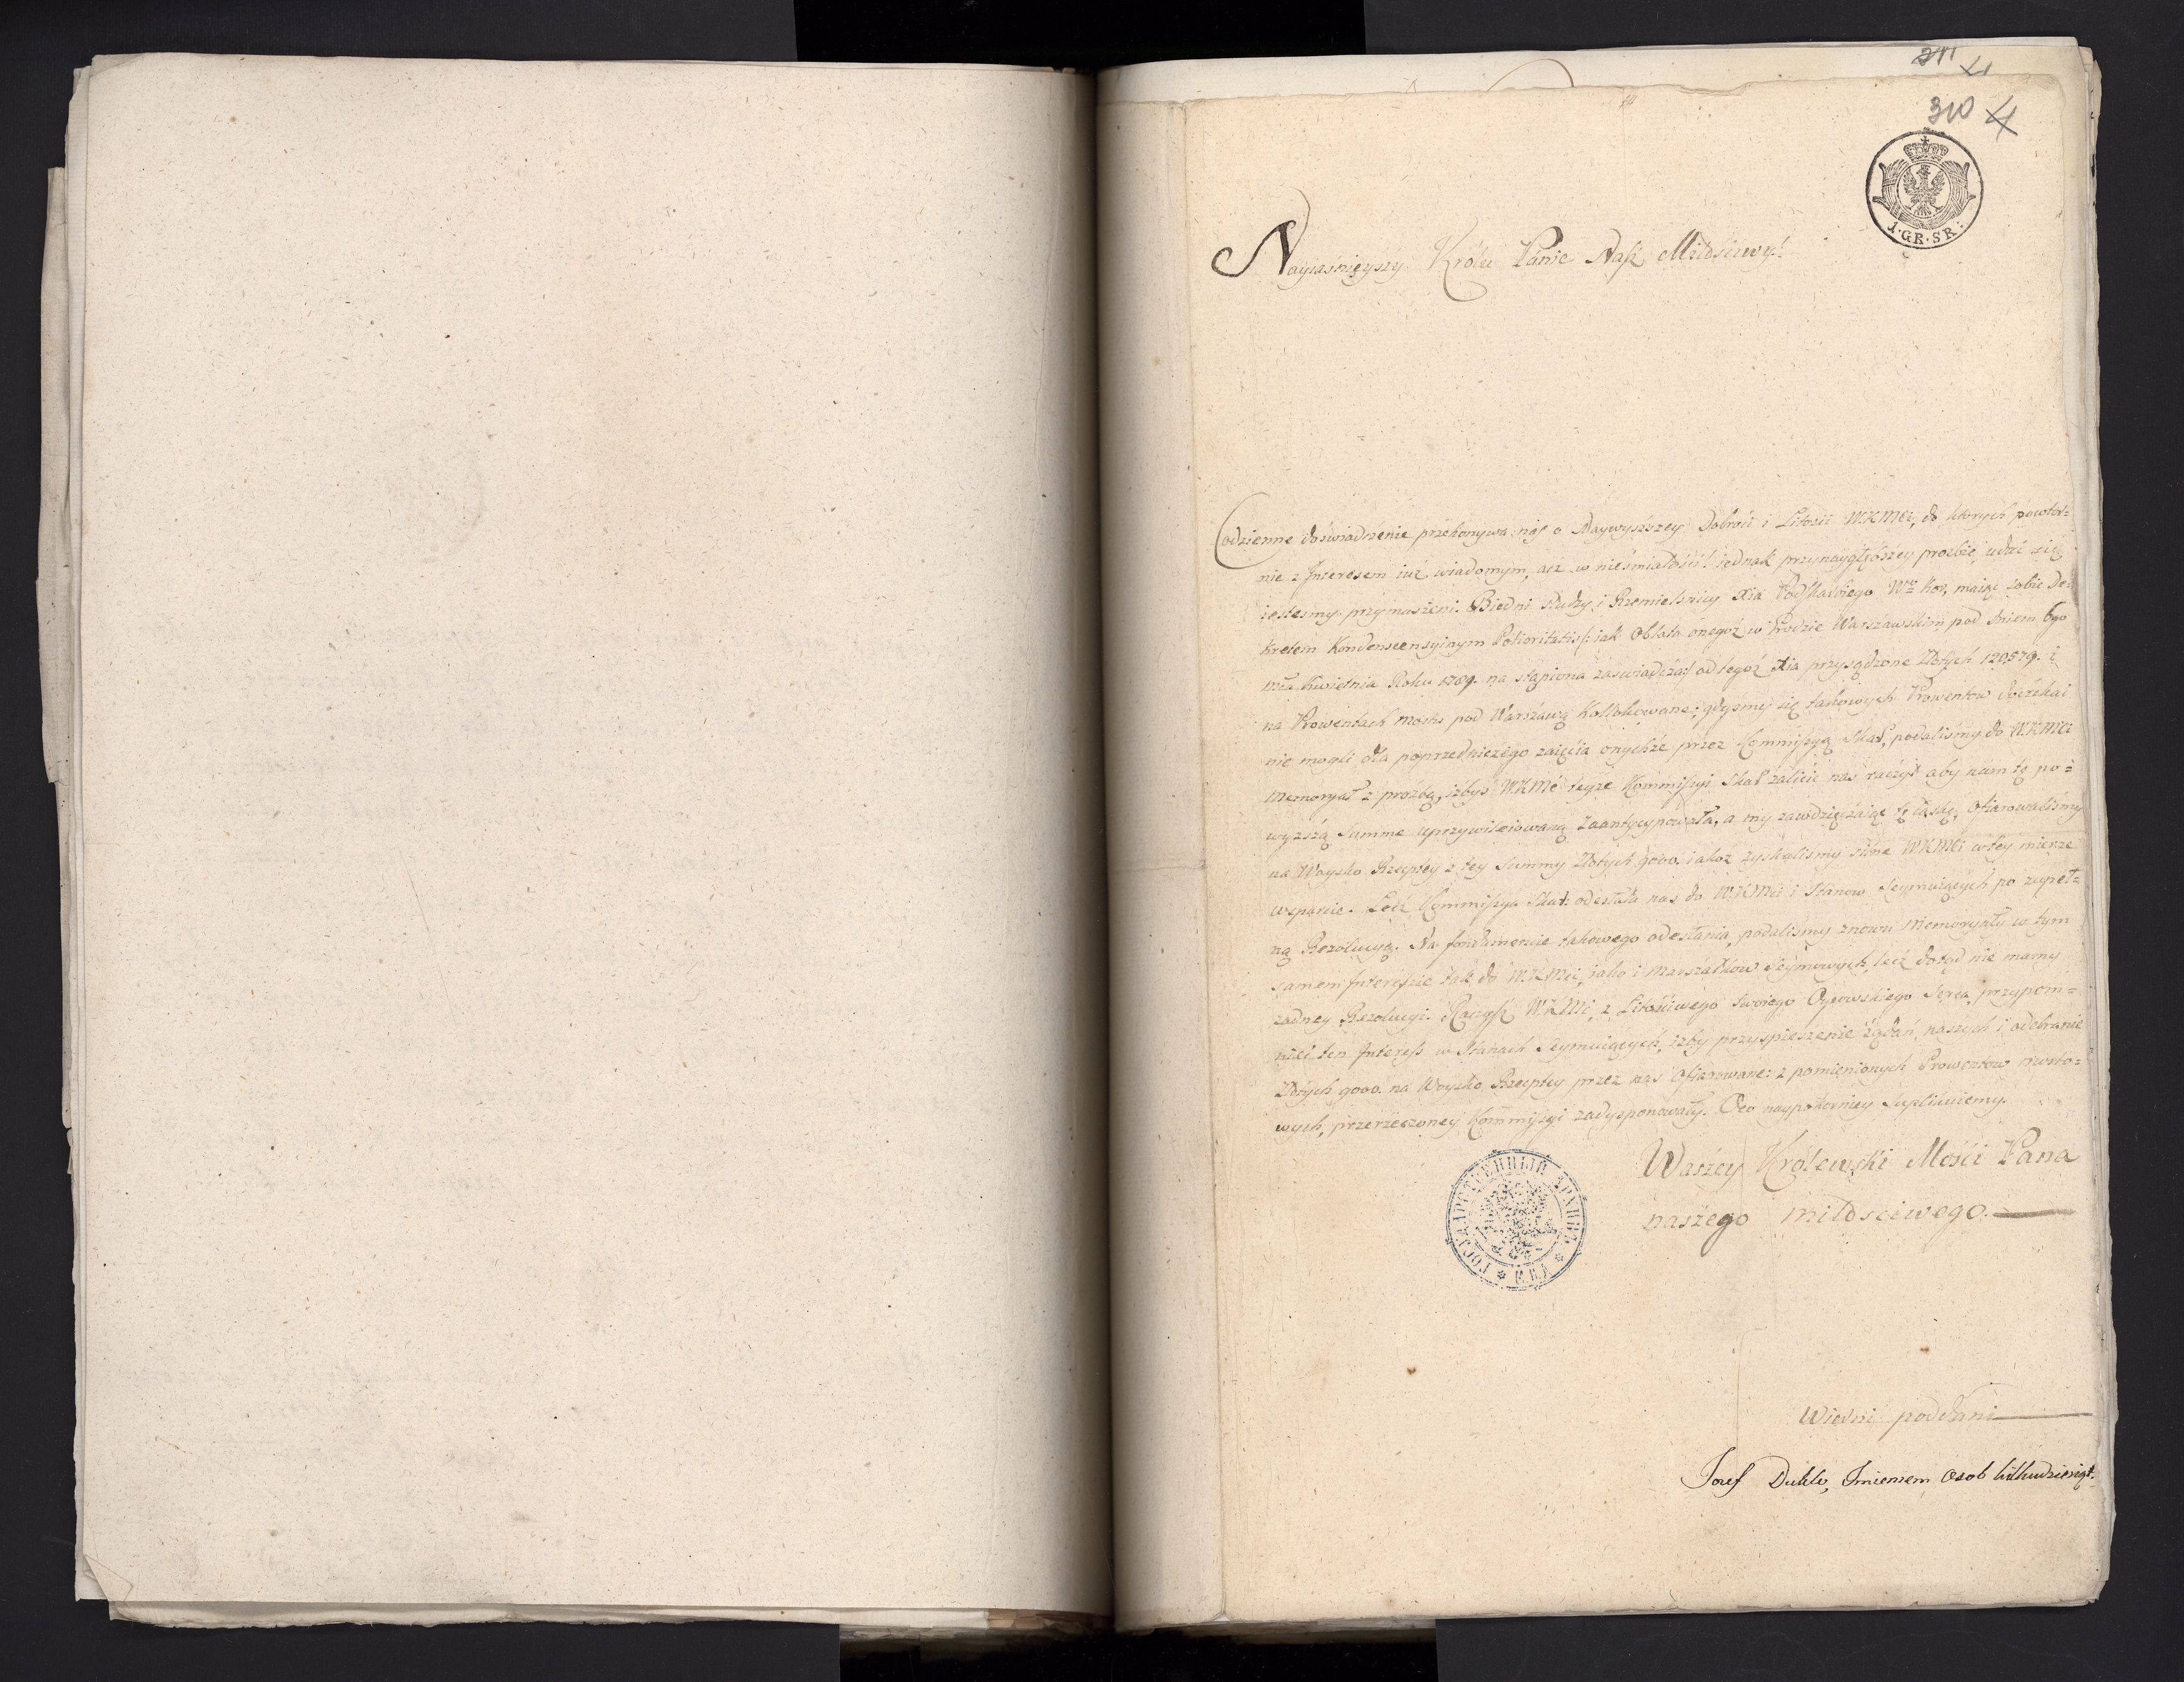 310 4
1·GR·SR·
Nayiaśnieyszy Królu Panie Nasz Miłościwy!
Codzienne doświadczenie przekonywa nas o Naywyższey Dobroci i Litości W.K.Mci, do ktorych powtor=
nie z Interesem iuż wiadomym, acz w nieśmiałości! iednak przynayglębszey prozbie udać się
iesteśmy przymuszeni. Biedni słudzy i Rzemieslnicy Xia Podskarbiego Wgo Kor. maiąc sobie De=
kretem Kondenscensyinym Potioritatis /: iak Oblata onegoż w Grodzie Warszawskim pod dniem 6go
mca Kwietnia Roku 1789. na stąpiona zaswiadcza:/ od tegoż Xia przysądzone Złotych 120,579. i
na Prowentach mostu pod Warszawą Kollokowane; gdyśmy się takowych Prowentow doczekać
nie mogli dla poprzedniczego zaięcia onychże przez Kommissyą Skar, podaliśmy do W.K.Mci
Memoryał z proźbą, iżbyś W.K.Mć teyże Kommissyi Skar zalicić nas raczył aby nam tę po=
wyższą Summe uprzywileiowaną zaantycypowała, a my zawdzięczaiąc tę łaskę, ofiarowaliśmy
na Woysko Rzeczptey z tey Summy Złotych 9000. iakoż zyskaliśmy silne W.K.Mci w tey mierze
wsparcie. Lecz Kommissya Skar: odesłała nas do W.K.Mci i Stanow Seymuiących po zupeł=
ną Rezolucyą. Na fundamencie takowego odesłania, podalismy znowu Memoryały w tym
samem Interessie tak do W.K.Mci, iako i Marszałkow Seymowych, lecz dotąd nie mamy
zadney Rezolucyi. Raczysz W.K.Mć, z Litościwego twoiego Oycowskiego Serca, przypom=
nieć ten Interess w Stanach Seymuiących, izby przyspieszenie żądań naszych i odebranie
Złotych 9000. na Woysko Rzeczptey przez nas Ofiarowane: z pomienionych Prowentow mosto=
wych, przerzeczoney Kommissyi zadysponowały. Oco naypokorniey Suplikuiemy.
Waszey Królewski Mości Pana
naszego miłościwego.
ГОСУДАРСТВЕННЫЙ АРХИВЪ
Wierni poddani
Jozef Dukle, Imieniem Osob kilkudziesiąt.